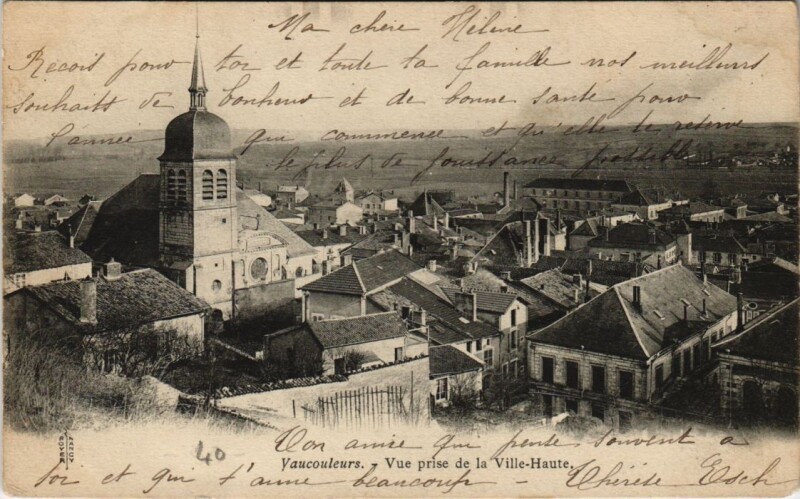 Ma chère Hélène
Reçois pour toi et toute ta famille nos meilleurs
souhaits de bonheur et de bonne santé pour
l'année qui commence et qu'elle te reserve
le plus de jouissance possible
Ton amie qui pense souvent a
toi et qui t'aime beaucoup - Thérèse Esch
40
Vaucouleurs. - Vue prise de la Ville-Haute.
ROYER
NANCY